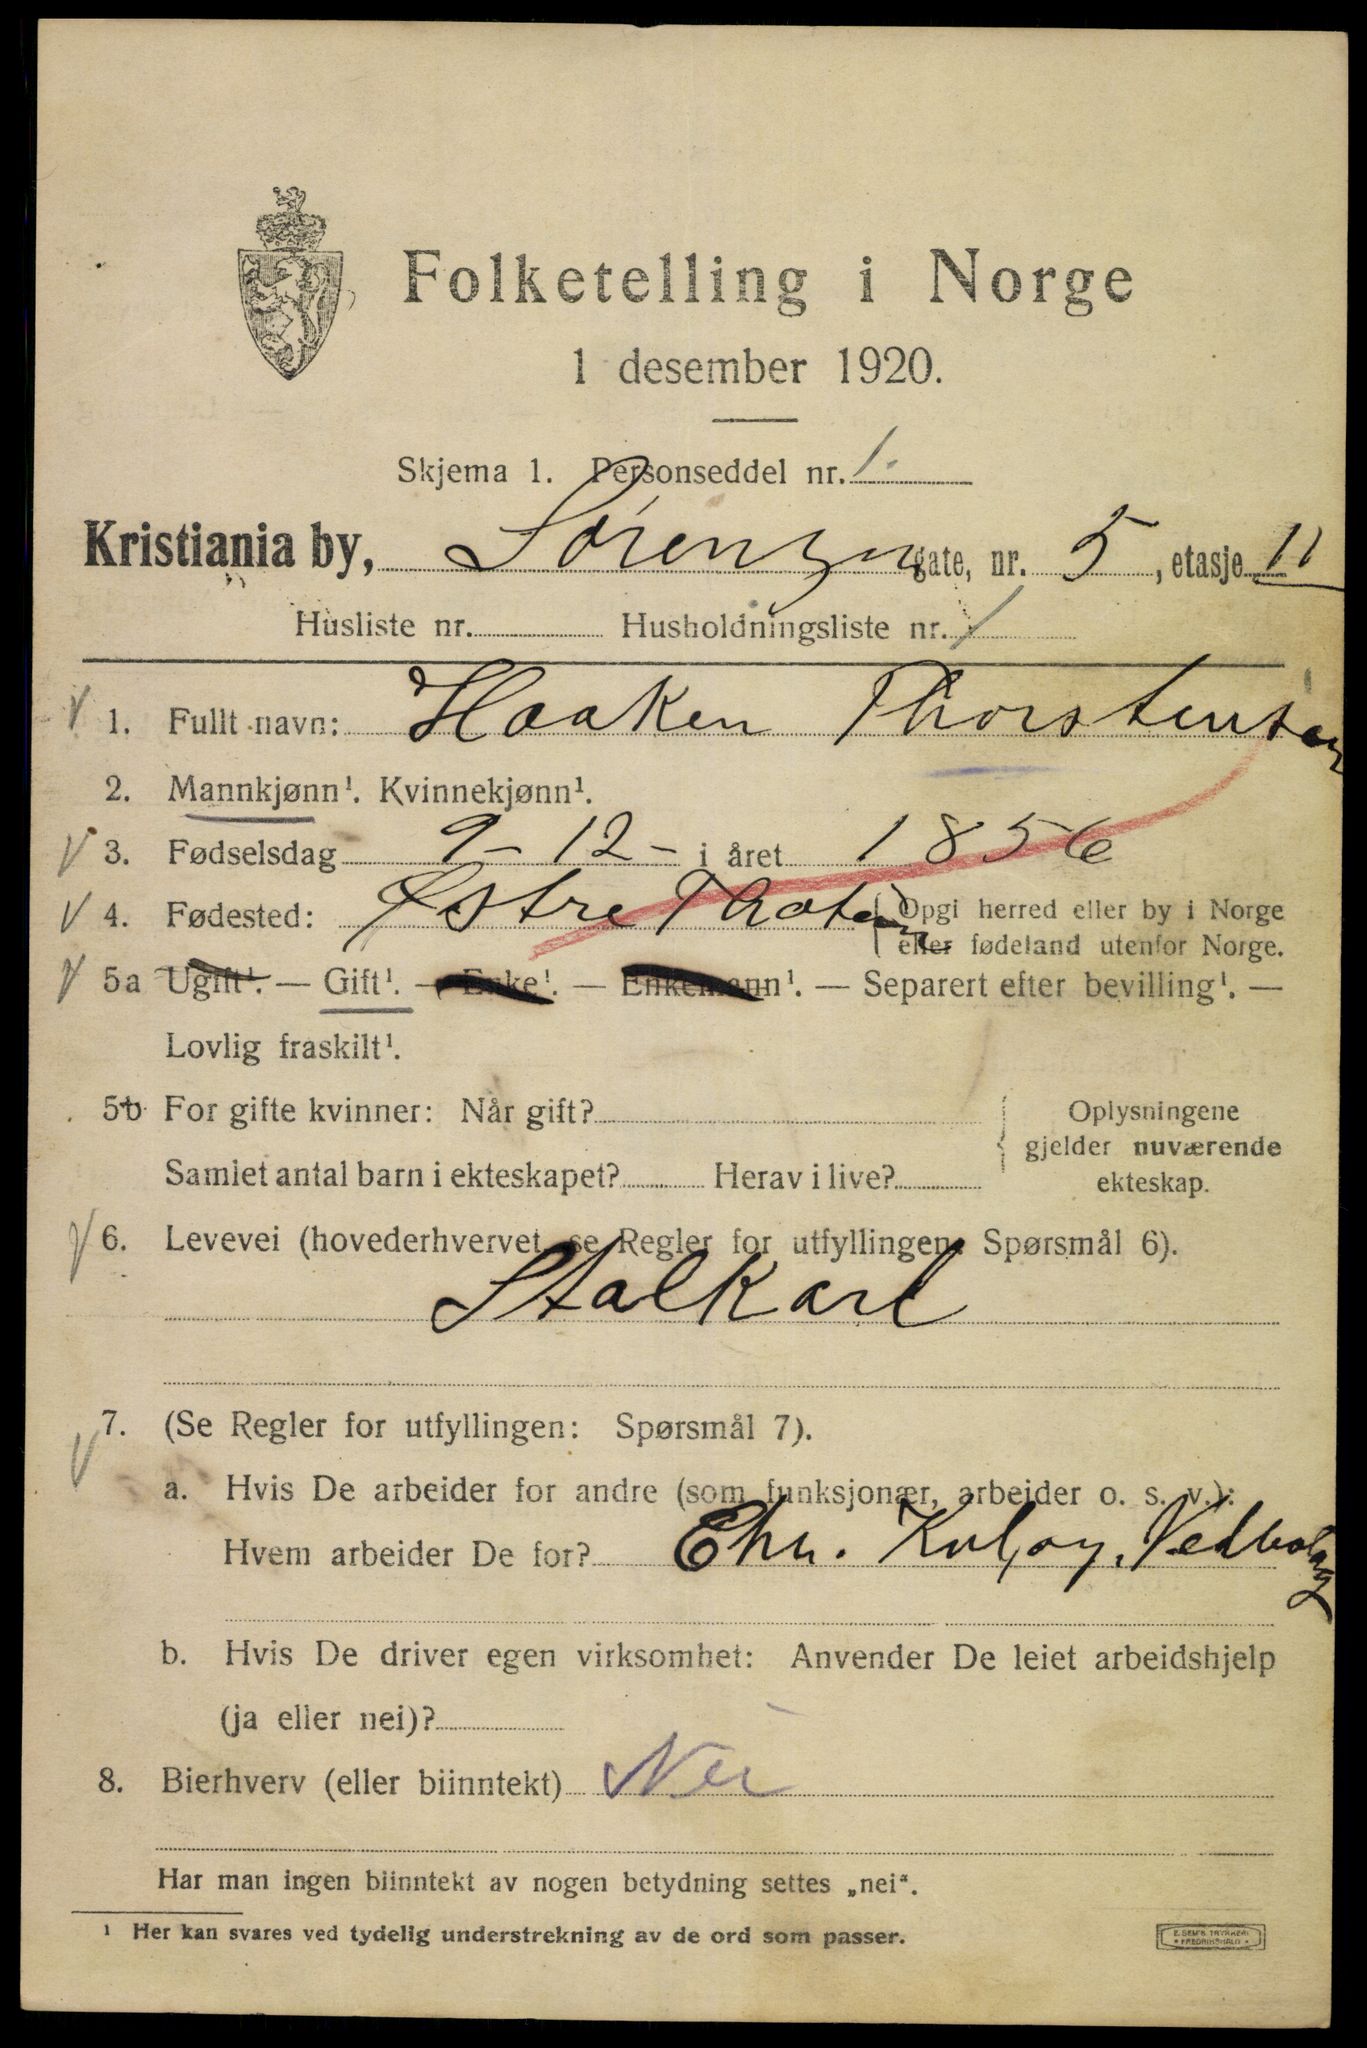 Folketelling i Norge
1 desember 1920.
Skjema 1. Personseddel nr. 1.
Kristiania by, Sörenzen gate, nr. 5, etasje 11
Husliste nr. Husholdningsliste nr. 1
1. Fullt navn: Haaken Thorstensen
2. Mannkjønn¹. Kvinnekjønn¹.
3. Fødselsdag 9-12- i året 1856
4. Fødested: Østre Thoten (Opgi herred eller by i Norge
eller fødeland utenfor Norge.
5a Ugift¹. — Gift¹. — Enke¹. — Enkemann¹. — Separert efter bevilling¹. —
Lovlig fraskilt¹.
5b For gifte kvinner: Når gift? Oplysningene
gjelder nuværende
Samlet antal barn i ekteskapet? Herav i live? ekteskap.
6. Levevei (hovederhvervet, se Regler for utfyllingen, Spørsmål 6).
Stalkarl
7. (Se Regler for utfyllingen: Spørsmål 7).
a. Hvis De arbeider for andre (som funksjonær, arbeider o. s. v.):
Hvem arbeider De for? Chr. Vedbolag
b. Hvis De driver egen virksomhet: Anvender De leiet arbeidshjelp
(ja eller nei)?
8. Bierhverv (eller biinntekt) Nei
Har man ingen biinntekt av nogen betydning settes „nei".
¹ Her kan svares ved tydelig understrekning av de ord som passer.
E. SEM'S TRYKKERI
• FREDRIKSHALD •